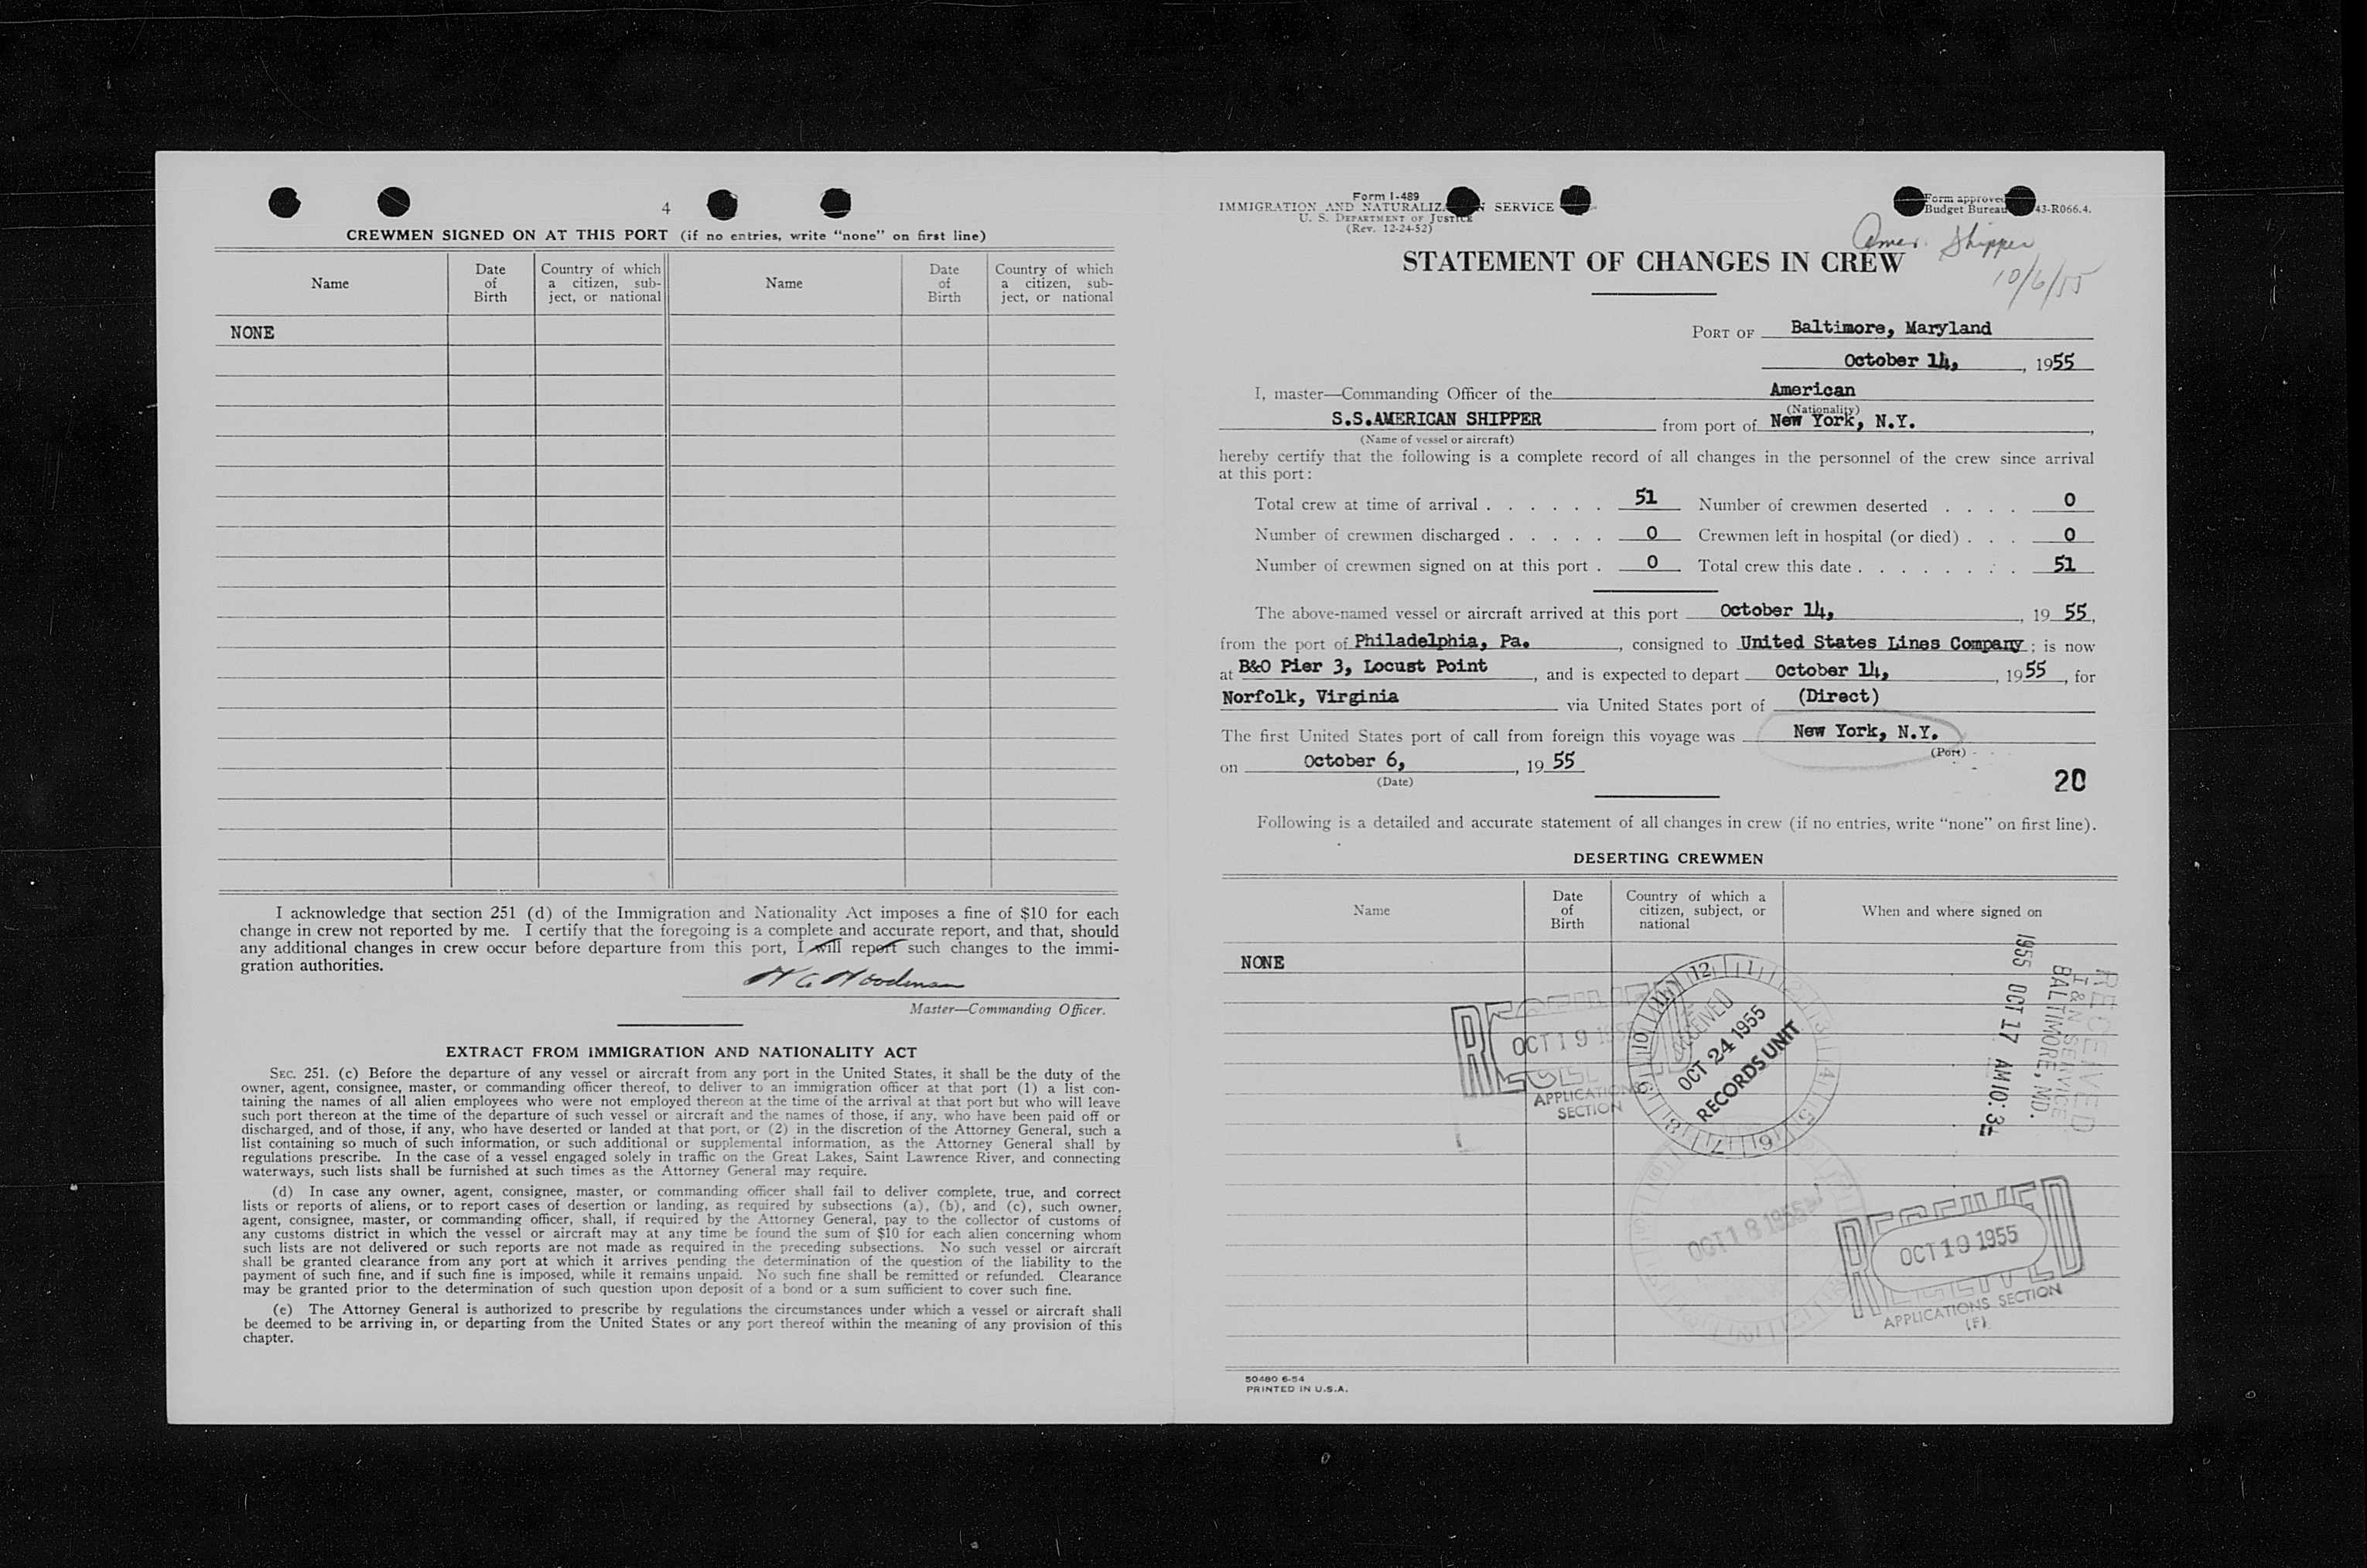 4
CREWMEN SIGNED ON AT THIS PORT (if no entries, write "none" on first line)
Name
Date of Birth
Country of which a citizen, sub-ject, or national
Name
Date of Birth
Country of which a citizen, sub-ject, or national
NONE
I acknowledge that section 251 (d) of the Immigration and Nationality Act imposes a fine of $10 for each
change in crew not reported by me. I certify that the foregoing is a complete and accurate report, and that, should
any additional changes in crew occur before departure from this port, I will report such changes to the immi-
gration authorities.
Master—Commanding Officer.
EXTRACT FROM IMMIGRATION AND NATIONALITY ACT
SEC. 251. (c) Before the departure of any vessel or aircraft from any port in the United States, it shall be the duty of the
owner, agent, consignee, master, or commanding officer thereof, to deliver to an immigration officer at that port (1) a list con-
taining the names of all alien employees who were not employed thereon at the time of the arrival at that port but who will leave
such port thereon at the time of the departure of such vessel or aircraft and the names of those, if any, who have been paid off or
discharged, and of those, if any, who have deserted or landed at that port, or (2) in the discretion of the Attorney General, such a
list containing so much of such information, or such additional or supplemental information, as the Attorney General shall by
regulations prescribe. In the case of a vessel engaged solely in traffic on the Great Lakes, Saint Lawrence River, and connecting
waterways, such lists shall be furnished at such times as the Attorney General may require.
(d) In case any owner, agent, consignee, master, or commanding officer shall fail to deliver complete, true, and correct
lists or reports of aliens, or to report cases of desertion or landing, as required by subsections (a), (b), and (c), such owner,
agent, consignee, master, or commanding officer, shall, if required by the Attorney General, pay to the collector of customs of
any customs district in which the vessel or aircraft may at any time be found the sum of $10 for each alien concerning whom
such lists are not delivered or such reports are not made as required in the preceding subsections. No such vessel or aircraft
shall be granted clearance from any port at which it arrives pending the determination of the question of the liability to the
payment of such fine, and if such fine is imposed, while it remains unpaid. No such fine shall be remitted or refunded. Clearance
may be granted prior to the determination of such question upon deposit of a bond or a sum sufficient to cover such fine.
(e) The Attorney General is authorized to prescribe by regulations the circumstances under which a vessel or aircraft shall
be deemed to be arriving in, or departing from the United States or any port thereof within the meaning of any provision of this
chapter.
Form I-489
IMMIGRATION AND NATURALIZ N SERVICE
U. S. DEPARTMENT OF JUSTICE
(Rev. 12-24-52)
Form approved
Budget Bureau 43-R066.4.
Amer. Shipper
10/6/55
STATEMENT OF CHANGES IN CREW
PORT OF Baltimore, Maryland
October 14, , 1955
I, master—Commanding Officer of the American
(Nationality)
S.S.AMERICAN SHIPPER from port of New York, N.Y. ,
(Name of vessel or aircraft)
hereby certify that the following is a complete record of all changes in the personnel of the crew since arrival
at this port:
Total crew at time of arrival . . . . . . 51 Number of crewmen deserted . . . . 0
Number of crewmen discharged . . . . . 0 Crewmen left in hospital (or died) . . . 0
Number of crewmen signed on at this port . 0 Total crew this date . . . . . . . . 51
The above-named vessel or aircraft arrived at this port October 14, , 19 55,
from the port of Philadelphia, Pa. , consigned to United States Lines Company ; is now
at B&O Pier 3, Locust Point , and is expected to depart October 14, , 1955 , for
Norfolk, Virginia via United States port of (Direct)
The first United States port of call from foreign this voyage was New York, N.Y.
(Port)
on October 6, , 19 55
(Date)
20
Following is a detailed and accurate statement of all changes in crew (if no entries, write "none" on first line).
DESERTING CREWMEN
Name
Date of Birth
Country of which a citizen, subject, or national
When and where signed on
NONE
RECEIVED
OCT 19 1955
APPLICATIONS
SECTION
RECEIVED
OCT 24 1955
RECORDS UNIT
RECEIVED
I & N SERVICE
BALTIMORE, MD.
1955 OCT 17 AM 10:
OCT 18 1955
RECEIVED
OCT 19 1955
APPLICATIONS SECTION
(F)
50480 6-54
PRINTED IN U.S.A.